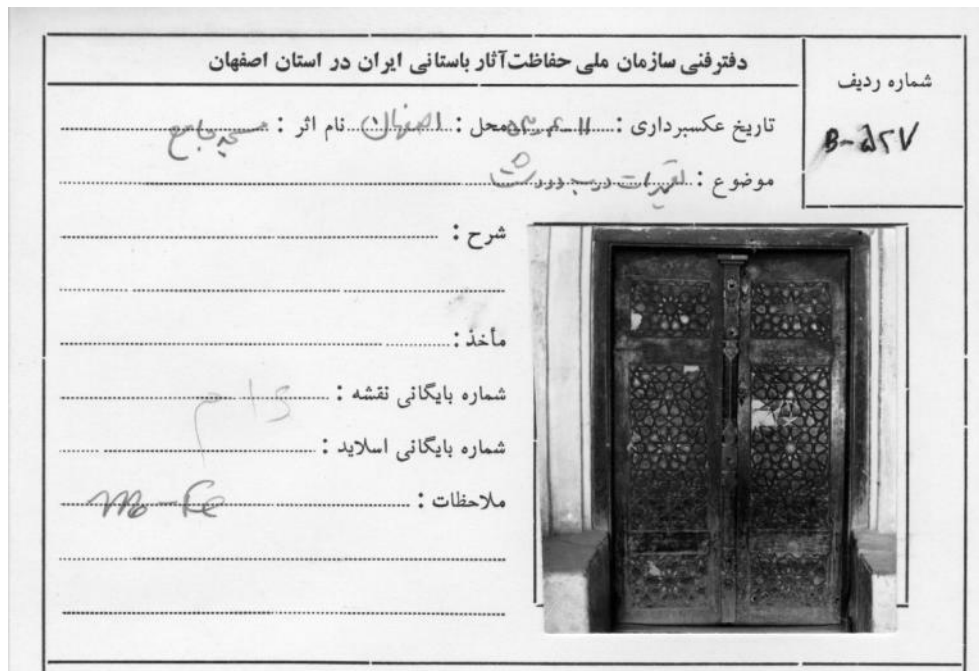 دفتر فنی سازمان ملی حفاظت آثار باستانی ایران در استان اصفهان
شماره ردیف
B-۵۲۷
تاریخ عکسبرداری : محل : اصفهان نام اثر : مسجد جامع
موضوع : تعمیرات درب دردشت
شرح :
مأخذ :
شماره بایگانی نقشه :
شماره بایگانی اسلاید :
ملاحظات :